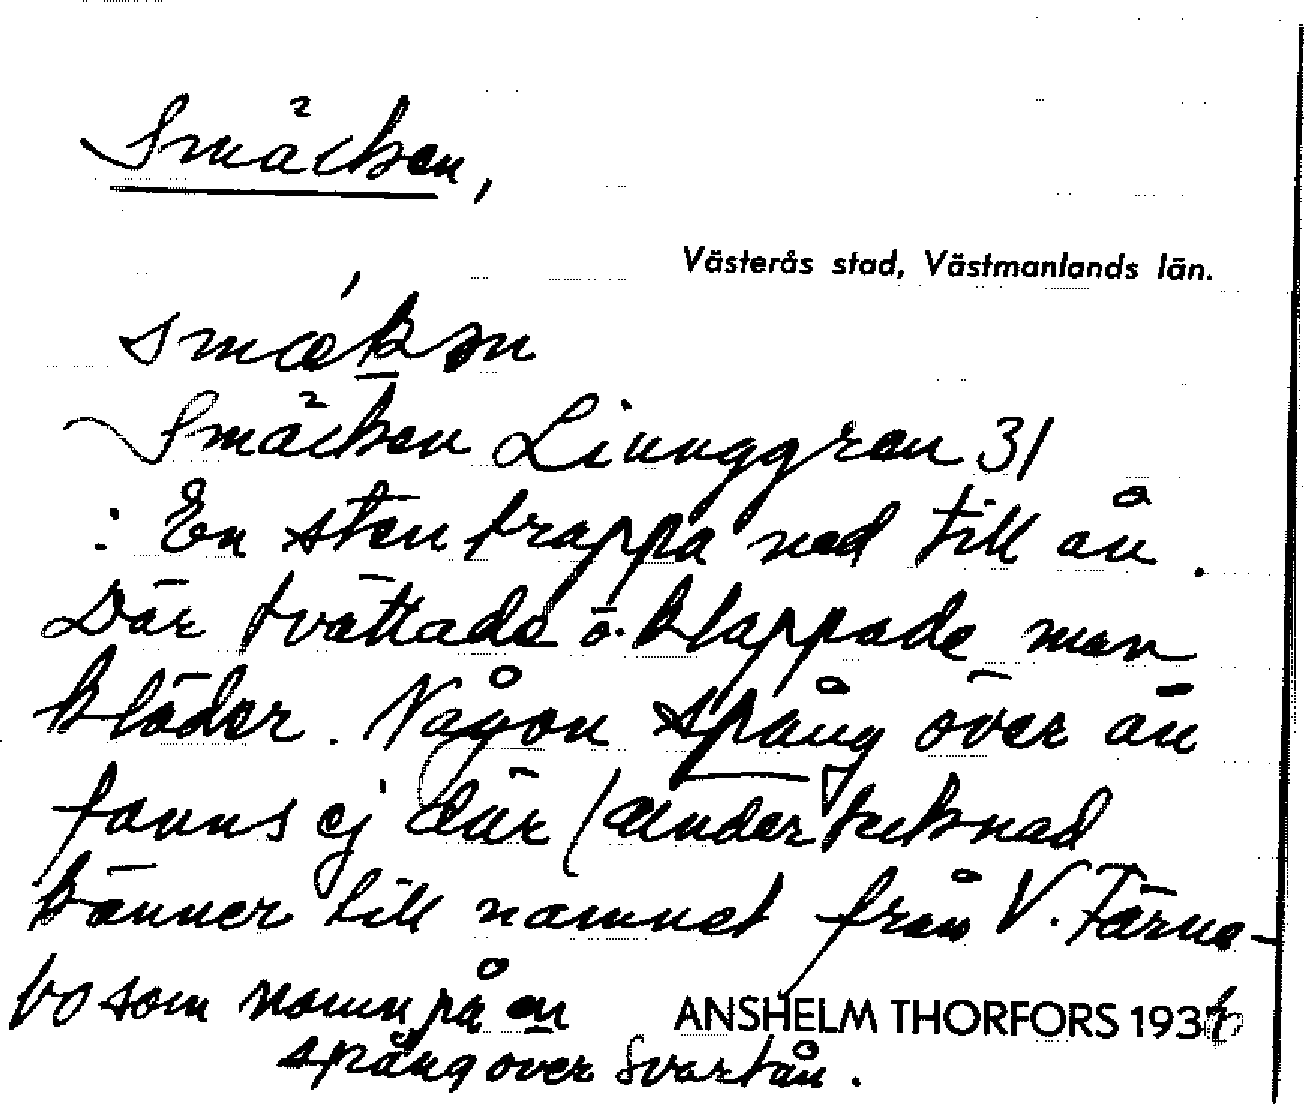 Smäcken,
Västerås stad, Västmanlands län.
smæ´kən
Smäcken Linnggren 31
: En stentrappa ned till ån.
Där tvättade o. klappade man
kläder. Någon spång över ån
fanns ej där (undertecknad
känner till namnet från V. Färne-
bo som namn på en
spång över Svartån.
ANSHELM THORFORS 193